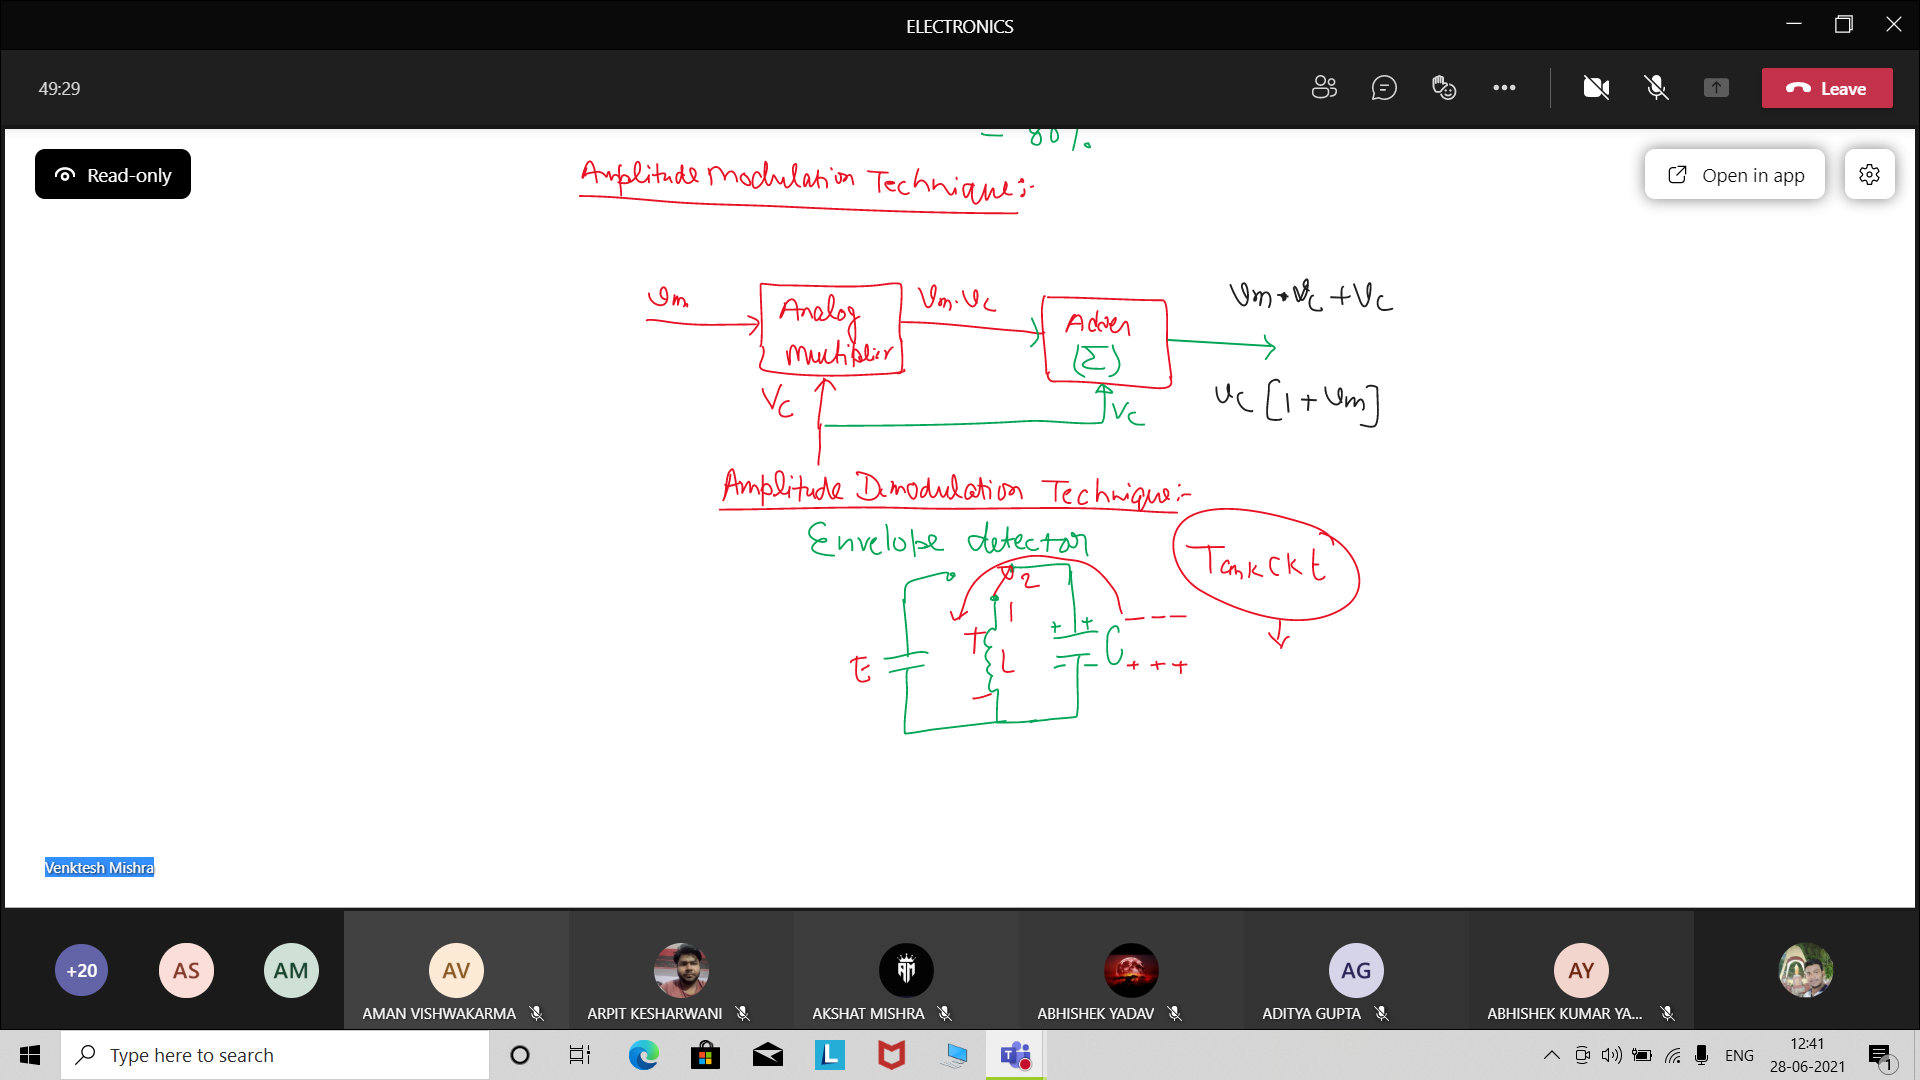 ELECTRONICS
49:29
Leave
= 80%
Read-only
Open in app
Amplitude Modulation Technique:-
Vm
Analog
Multiplier
Vm.Vc
Adder
(Σ)
Vm.Vc + Vc
Vc
Vc
Vc [1 + Vm]
Amplitude Demodulation Technique:-
Envelope detector
Tank Ckt
2
1
+
+ +
C
- - -
E
L
= -
+ + +
-
Venktesh Mishra
+20
AS
AM
AV
AMAN VISHWAKARMA
ARPIT KESHARWANI
AKSHAT MISHRA
ABHISHEK YADAV
AG
ADITYA GUPTA
AY
ABHISHEK KUMAR YA...
Type here to search
L
ENG
12:41
28-06-2021
1